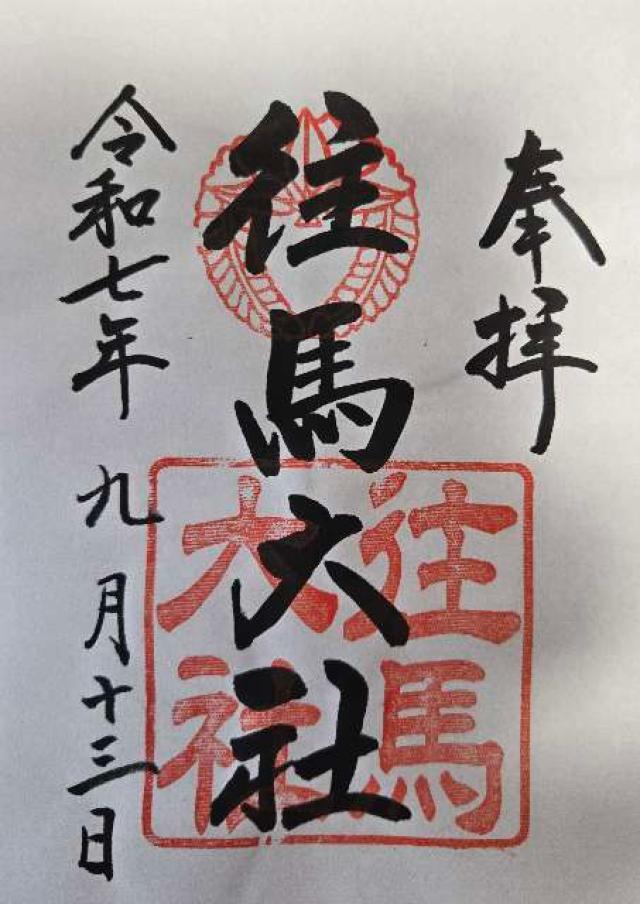 奉拝
往馬大社
往馬
大社
令和七年九月十三日